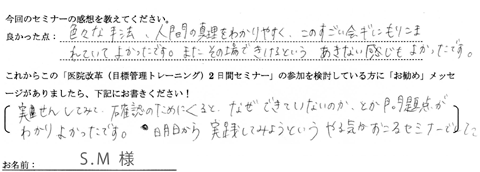 今回のセミナーの感想を教えてください。
良かった点： 色々な手法、人間の真理をわかりやすく、このすごい会ギにもりこま
れていてよかったです。またその場できけるという あきない感じもよかったです。
これからこの「医院改革（目標管理トレーニング）2日間セミナー」の参加を検討している方に「お勧め」メッセ
ージがありましたら、下記にお書きください！
実せんしてみて、確認のためにくると、なぜできていないのか、とか問題点が
わかりよかったです。明日から実践してみようという やる気がおこるセミナーでした
お名前： S.M 様